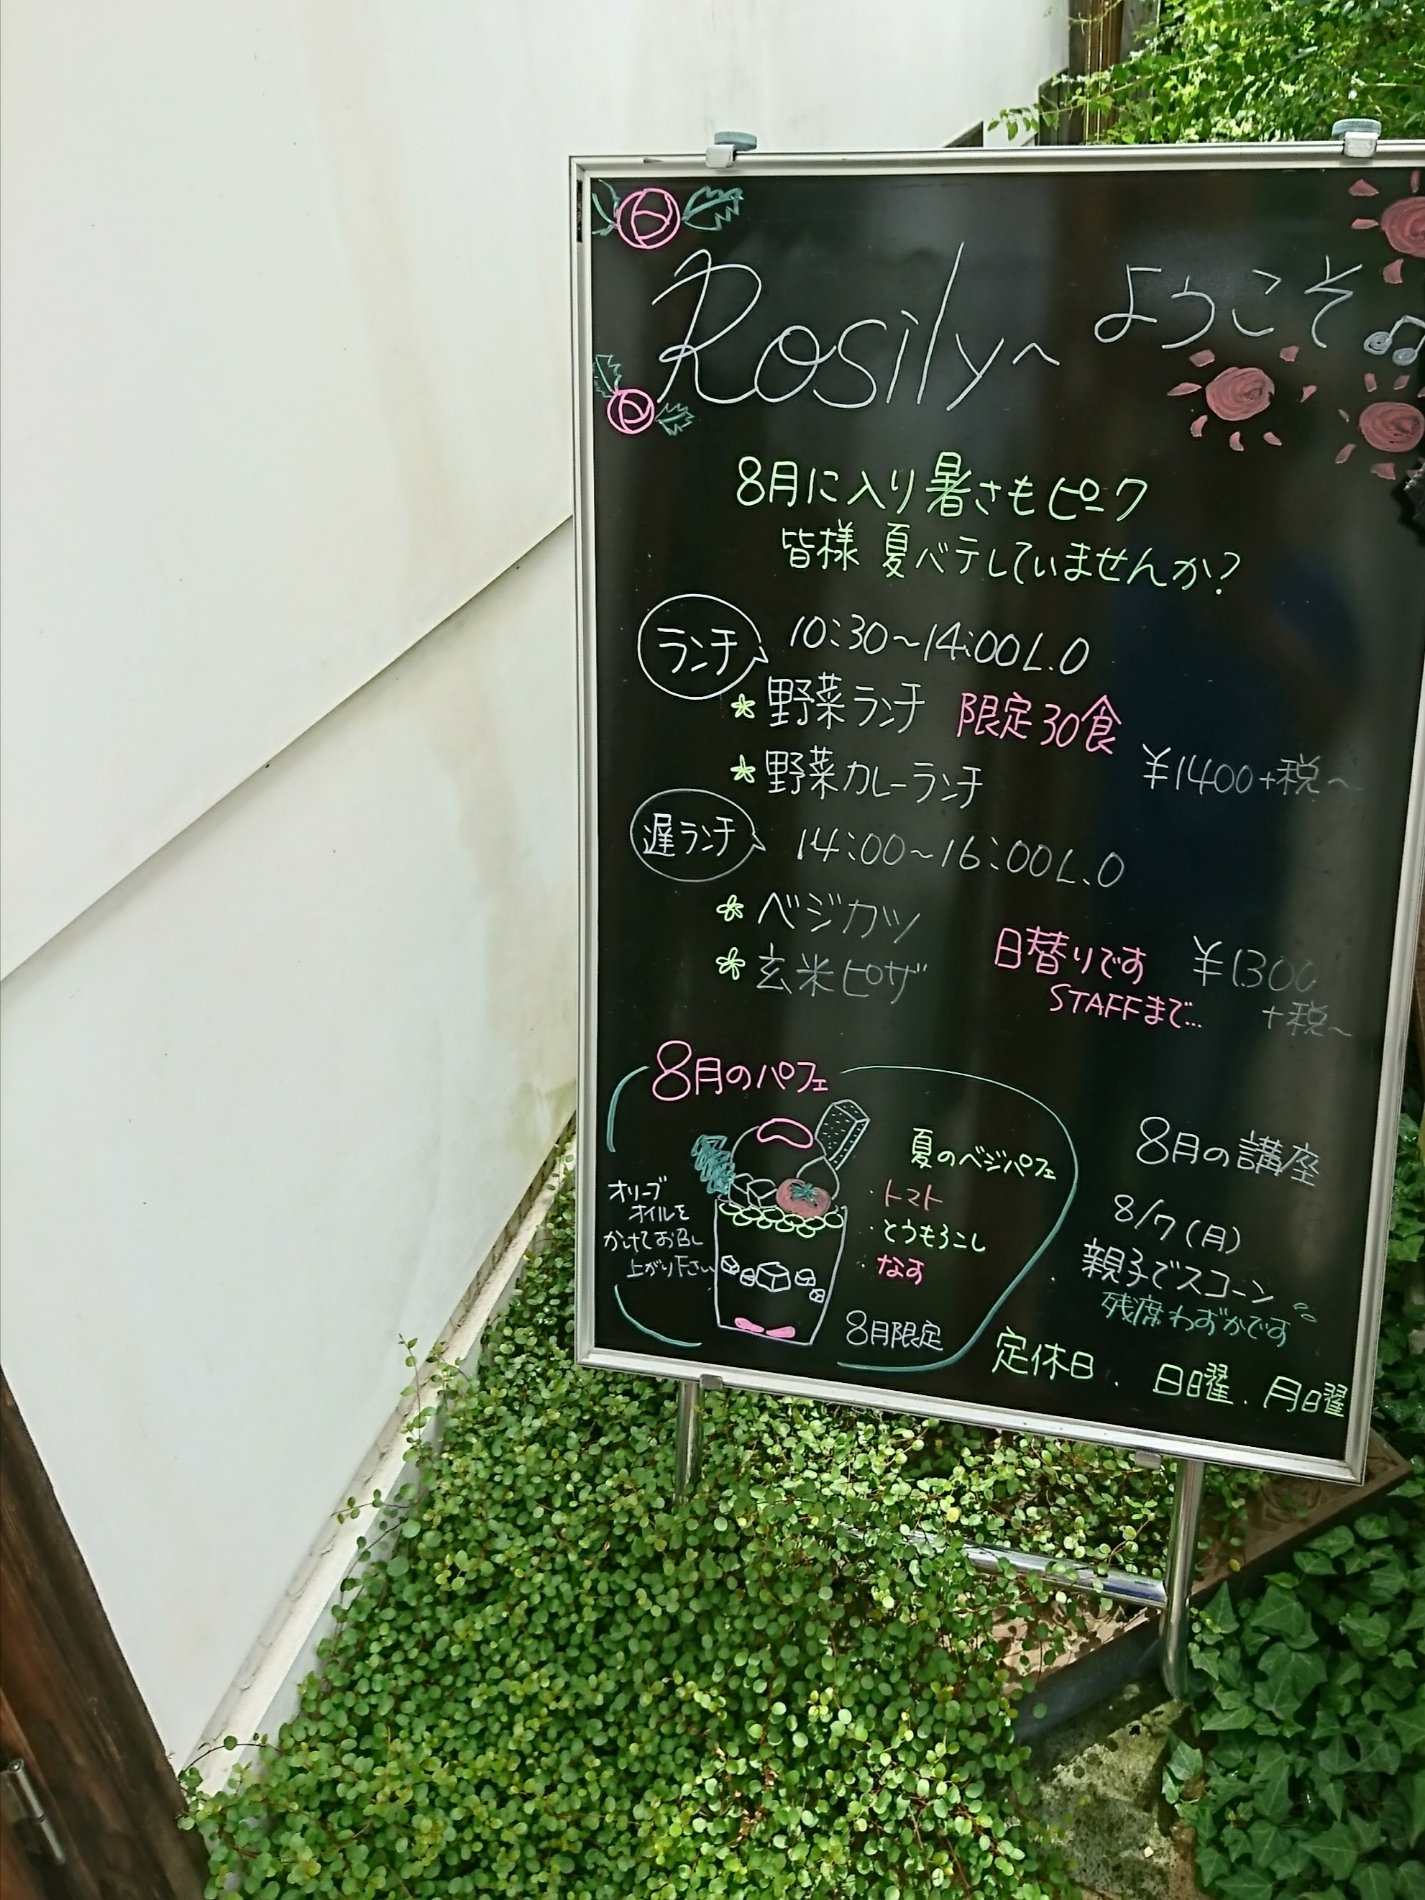 Rosilyへ ようこそ♫
8月に入り暑さもピーク
皆様 夏バテしていませんか?
ランチ 10:30〜14:00L.O
野菜ランチ 限定30食
野菜カレーランチ ¥1400+税〜
遅ランチ 14:00〜16:00L.O
ベジカツ
玄米ピザ
日替りです
STAFFまで...
¥1300
+税〜
8月のパフェ
オリーブ
オイルを
かけてお召し
上がり下さい
夏のベジパフェ
・トマト
・とうもろこし
・なす
8月限定
8月の講座
8/7(月)
親子でスコーン
残席わずかです
定休日. 日曜.月曜